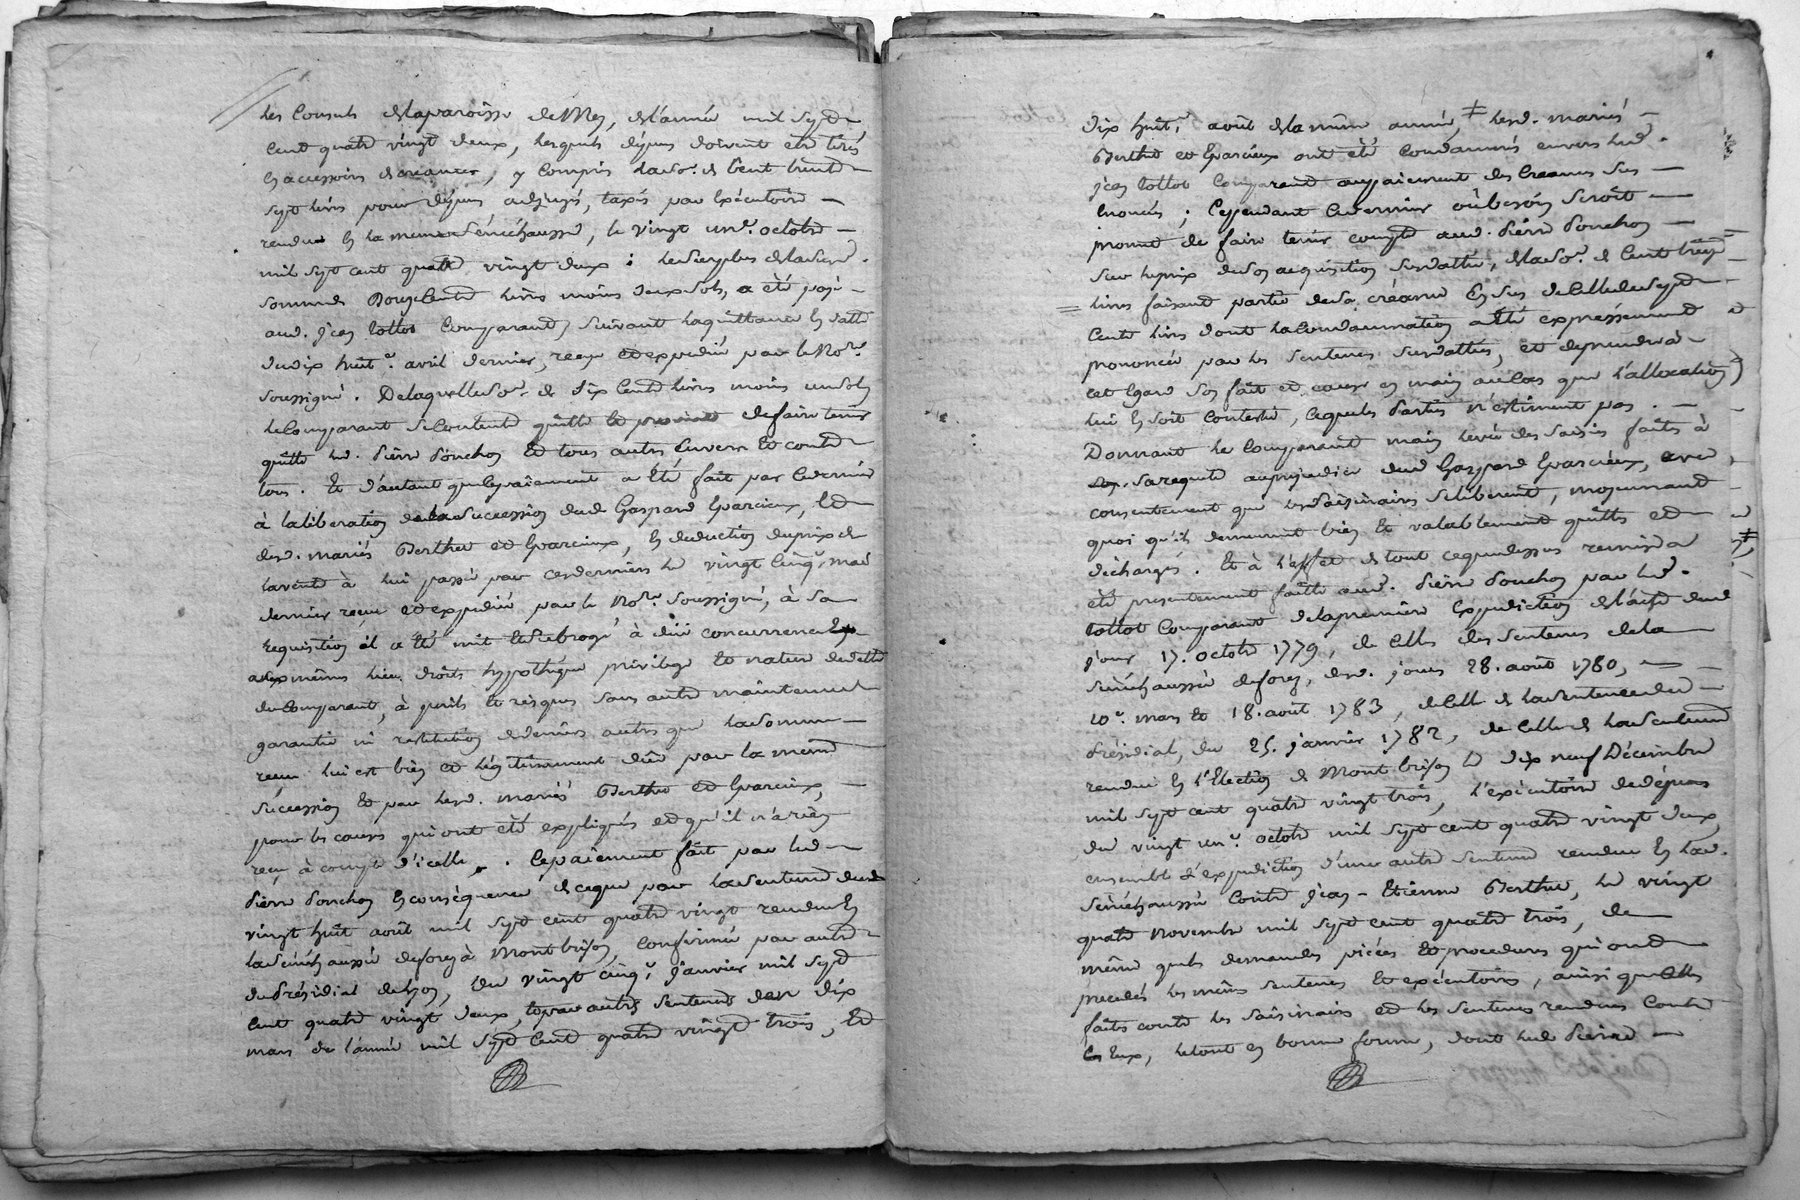 les Consuls de la paroisse de Mey, de l'année mil sept
cent quatre vingt deux, lesquels dépens doivent etre tirés
en accessoire de creances, y compris la so.e de Cent trente
sept livres pour dépens adjugés, taxés par Exécutoire
rendue En la meme Sénéchaussée, le vingt un.e octobre
mil sept cent quatre vingt deux : le Surplus de la
somme Douze Cents livres moins deux sols, a été payé
aud. jean tollot Comparant, suivant la quittance En datte
du dix huit.e avril dernier, reçue et expediée par le No.re
soussigné. De laquelle so.e de Six Cents livres moins un sol
le Comparant se Contente quitte et promet de faire tenir
quitte led. Pierre Ponchon Et tous autres Envers Et contre
tous. Et d'autant que le paiement a Eté fait par le dernier
à la libération de la Succession dud. Gaspard Eparcieux, Et
desd. mariés Berthet et Eparcieux, En deduction du prix de
la vente à lui passée par ces derniers le vingt Cinq.e mai
dernier reçue et expediée par le No.re Soussigné, à sa
requisition il a Eté mis Et Subrogé à due concurrence
aux mêmes lieu, droits hypothéque privilege Et nature de dette
du Comparant, à perils Et risques Sans autre maintenue
garantie ni restitution de deniers autres que la somme
reçue lui est bien et légitimement due par la meme
Succession Et par lesd. mariés Berthet et Eparcieux,
pour les causes qui ont été expliqués et qu'il n'a rien
reçu à compte d'icelle. Le paiement fait par led.
Pierre Ponchon En conséquence de ce que par la Sentence dud.
vingt huit août mil sept cent quatre vingt rendue En
la Sénéchaussée de forez à Montbrison, Confirmée par autre
du Présidial de Lyon, du vingt cinq.e janvier mil sept
cent quatre vingt deux, Et par autres Sentences des dix
mars de l'année mil sept Cent quatre vingt trois, Et
dix huit.e août de la même année, ǂ lesd. mariés
Berthet et Eparcieux ont été Condamnés envers led.
jean tollot Comparant au paiement des Creances Sus
Enoncées ; Cependant Ce dernier où besoin Seroit
promet de faire tenir compte aud. Pierre Ponchon
sur le prix de son acquisition Susdattée, de la so.e de Cent treize
livres faisant partie de sa créance En Sus de Celle de Sept
Cents livres dont la Condamnation a Eté expressément
prononcée par les Sentences Susdattées, et de prendre à
cet Egard Son fait et cause en main au Cas que l'allocation
lui En soit Contestée, Ce que les Parties n'estiment pas.
Donnant le Comparant main levée des Saisies faites à
Sa requete au prejudice dud. Gaspard Eparcieux, avec
consentement que les Saisinaires Se libérent, moyennant
quoi qu'ils demeurent bien Et valablement quittes et
déchargés. Et à l'effet de tout ce que dessus remise a
été presentement faitte aud. Pierre Ponchon par led.
tollot Comparant de la premiére Expédiction de l'acte dud.
jour 17. octobre 1779, de Celle des Sentences de la
Sénéchaussée de forez, desd. jours 28. août 1780,
10.e mars Et 18. août 1783, de Celle de la Sentence du
Présidial, du 25. janvier 1782, de Celle de la Sentence
rendue En l'Election de Montbrison le dix neuf Décembre
mil sept cent quatre vingt trois, l'exécutoire de dépens
du vingt un.e octobre mil sept cent quatre vingt deux,
ensemble d'expédiction d'une autre Sentence rendue En lad.
Sénéchaussée Contre jean-Etienne Berthet, le vingt
quatre Novembre mil sept cent quatre trois, de
même que les demandes piéces Et procedures qui ont
precedés les mêmes Sentences Et exécutoires, ainsi que celles
faites contre les Saisinaires et les Sentences rendues Contre
Eux, le tout en bonne forme, dont led. Pierre